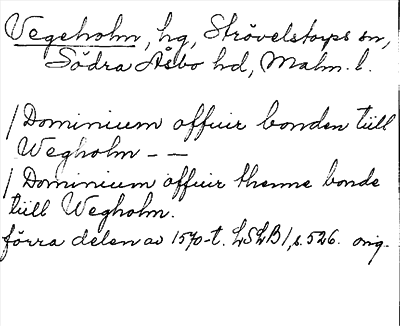 Vegeholm, hg, Strövelstorps sn,
Södra Åsbo hd, Malm. l.
/ Dominium offuir bonden tiill
Wegholm – –
/ Dominium offuir thenne bonde
tiill Wegholm.
förra delen av 1570-t. LSLB 1, s. 526. orig.